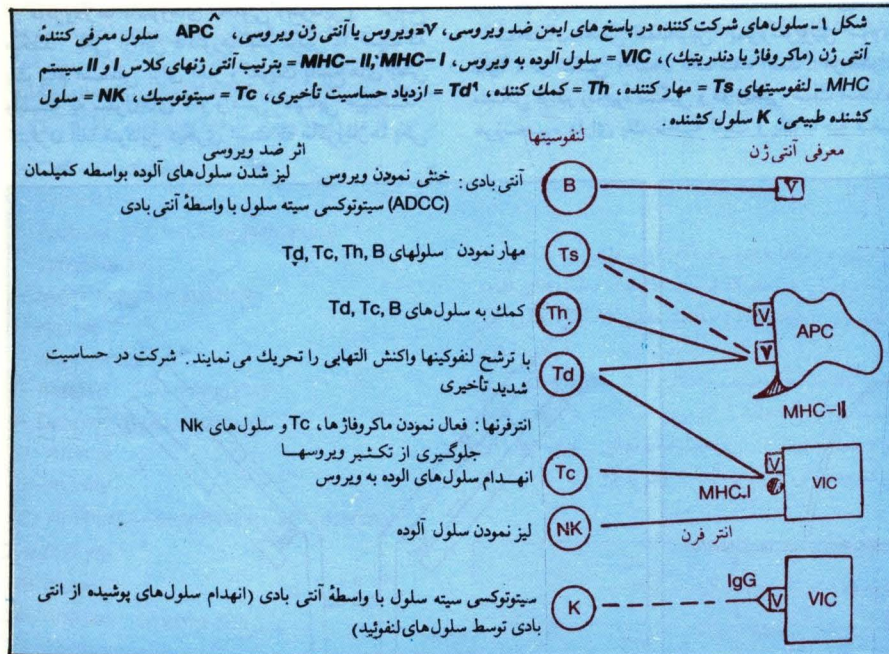 شکل ۱ـ سلول‌های شرکت کننده در پاسخ های ایمن ضد ویروسی، V= ویروس یا آنتی ژن ویروسی، APC سلول معرفی کنندهٔ
آنتی ژن (ماکروفاژ یا دندریتیك)، VIC = سلول آلوده به ویروس، MHC-I ,MHC-II = بترتیب آنتی ژنهای کلاس I و II سیستم
MHC ـ لنفوسیتهای Ts = مهار کننده، Th = کمك کننده، Td = ازدیاد حساسیت تأخیری، Tc = سیتوتوسیك، NK = سلول
کشنده طبیعی، K سلول کشنده.
معرفی آنتی ژن
لنفوسیتها
اثر ضد ویروسی
V
B
آنتی بادی: خنثی نمودن ویروس لیز شدن سلول‌های آلوده بواسطه کمپلمان
(ADCC) سیتوتوکسی سیته سلول با واسطهٔ آنتی بادی
Ts
مهار نمودن سلولهای Td, Tc, Th, B
V
APC
V
MHC-II
Th
کمك به سلول‌های Td, Tc, B
Td
با ترشح لنفوکینها واکنش التهابی را تحریك می نمایند. شرکت در حساسیت
شدید تأخیری
انترفرنها: فعال نمودن ماکروفاژها، Tc و سلول‌های Nk
جلوگیری از تکثیر ویروسها
V
VIC
MHC.I
Tc
انهدام سلول‌های الوده به ویروس
انتر فرن
NK
لیز نمودن سلول آلوده
IgG
V
VIC
K
سیتوتوکسی سیته سلول با واسطهٔ آنتی بادی (انهدام سلول‌های پوشیده از انتی
بادی توسط سلول‌های لنفوئید)